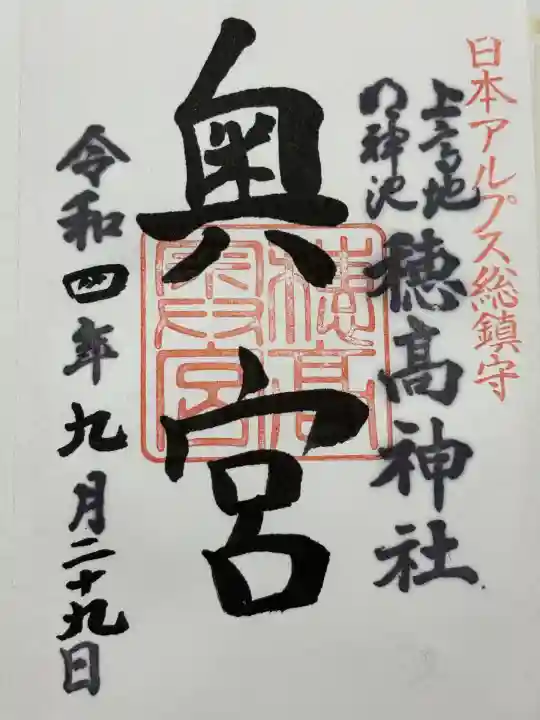 日本アルプス総鎮守
上高地
明神池
穂高神社
奥宮
穂高
奥宮
令和四年九月二十九日